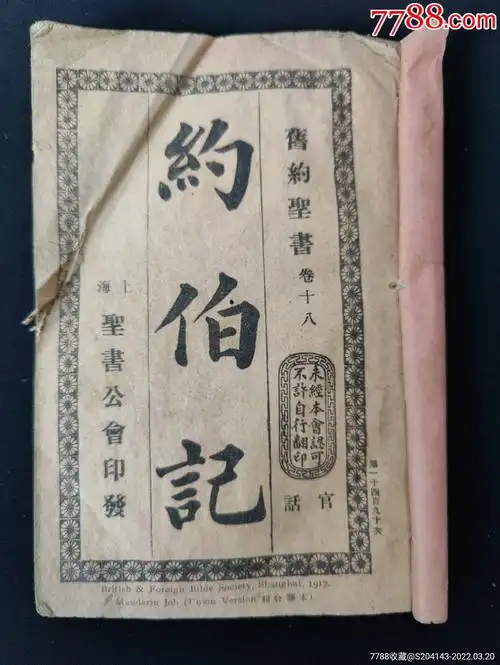 7788.com
舊約聖書 卷十八
未經本會認可
不許自行翻印
官話
約伯記
上海
聖書公會印發
British & Foreign Bible Society, Shanghai, 1917.
Mandarin Job (Union Version
7788收藏@S204143-2022.03.20